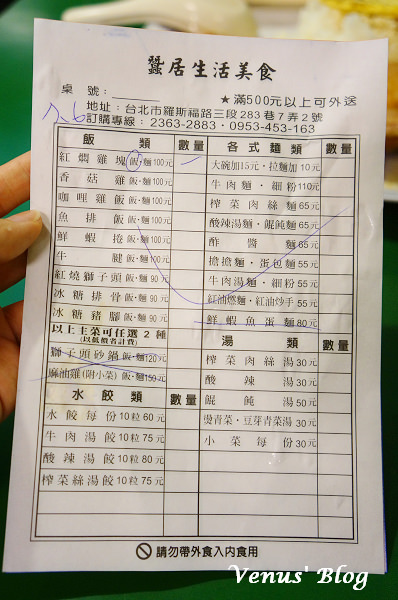 蠶居生活美食
桌號:
★滿500元以上可外送
地址:台北市羅斯福路三段283巷7弄2號
訂購專線:2363-2883·0953-453-163
飯類 數量
紅燜雞塊飯·麵100元
香菇雞飯·麵100元
咖哩雞飯·麵100元
魚排飯·麵100元
鮮蝦捲飯·麵100元
牛腱飯·麵100元
紅燒獅子頭飯·麵90元
冰糖排骨飯·麵90元
冰糖豬腳飯·麵90元
以上主菜可任選2種
(以低價者計費)
獅子頭砂鍋飯·麵120元
麻油雞(附小菜)飯·麵150元
水餃類 數量
水餃每份10粒60元
牛肉湯餃10粒75元
酸辣湯餃10粒80元
榨菜絲湯餃10粒75元
各式麵類 數量
大碗加15元·拉麵加10元
牛肉麵·細粉110元
榨菜肉絲麵65元
酸辣湯麵·餛飩麵65元
酢醬麵65元
擔擔麵·蛋包麵55元
牛肉湯麵·細粉55元
紅油燃麵·紅油炒手55元
鮮蝦魚蛋麵80元
湯類 數量
榨菜肉絲湯30元
酸辣湯30元
餛飩湯50元
燙青菜·豆芽青菜湯30元
小菜每份30元
請勿帶外食入內食用
Venus' Blog